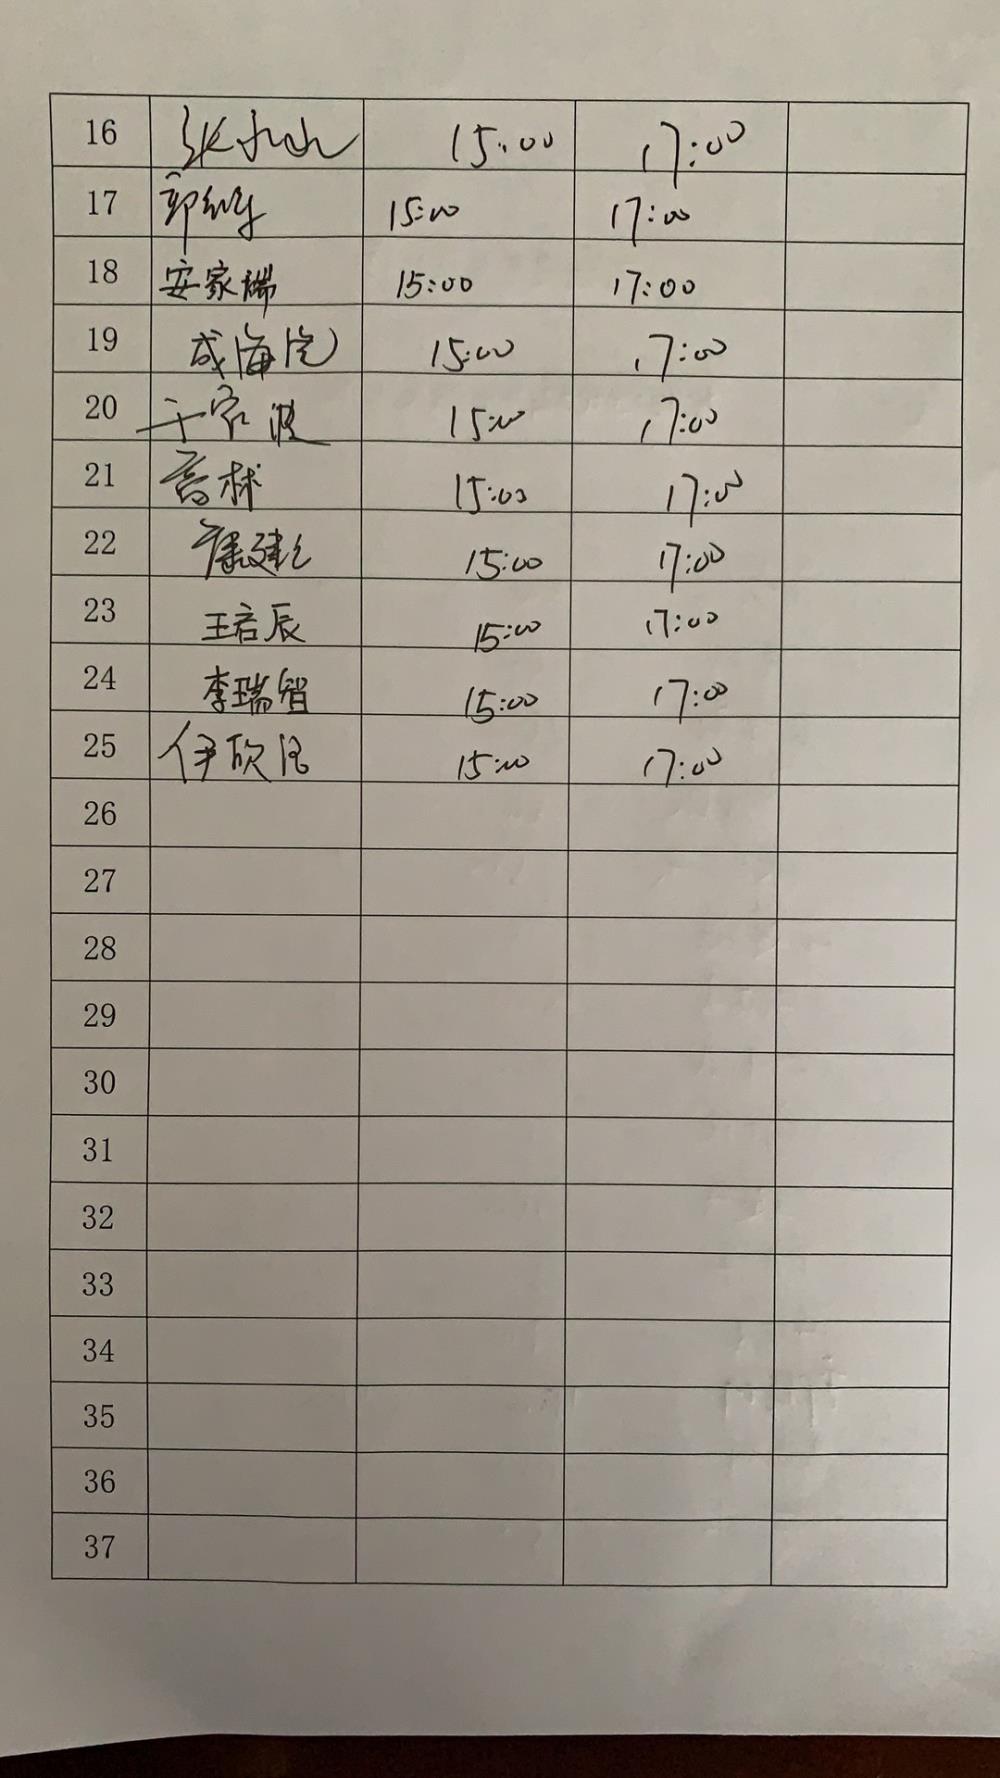 16 张 15:00 17:00
17 郭 15:00 17:00
18 安家瑞 15:00 17:00
19 成海 15:00 17:00
20 于家波 15:00 17:00
21 高林 15:00 17:00
22 康建 15:00 17:00
23 王启辰 15:00 17:00
24 李瑞智 15:00 17:00
25 伊欣 15:00 17:00
26
27
28
29
30
31
32
33
34
35
36
37